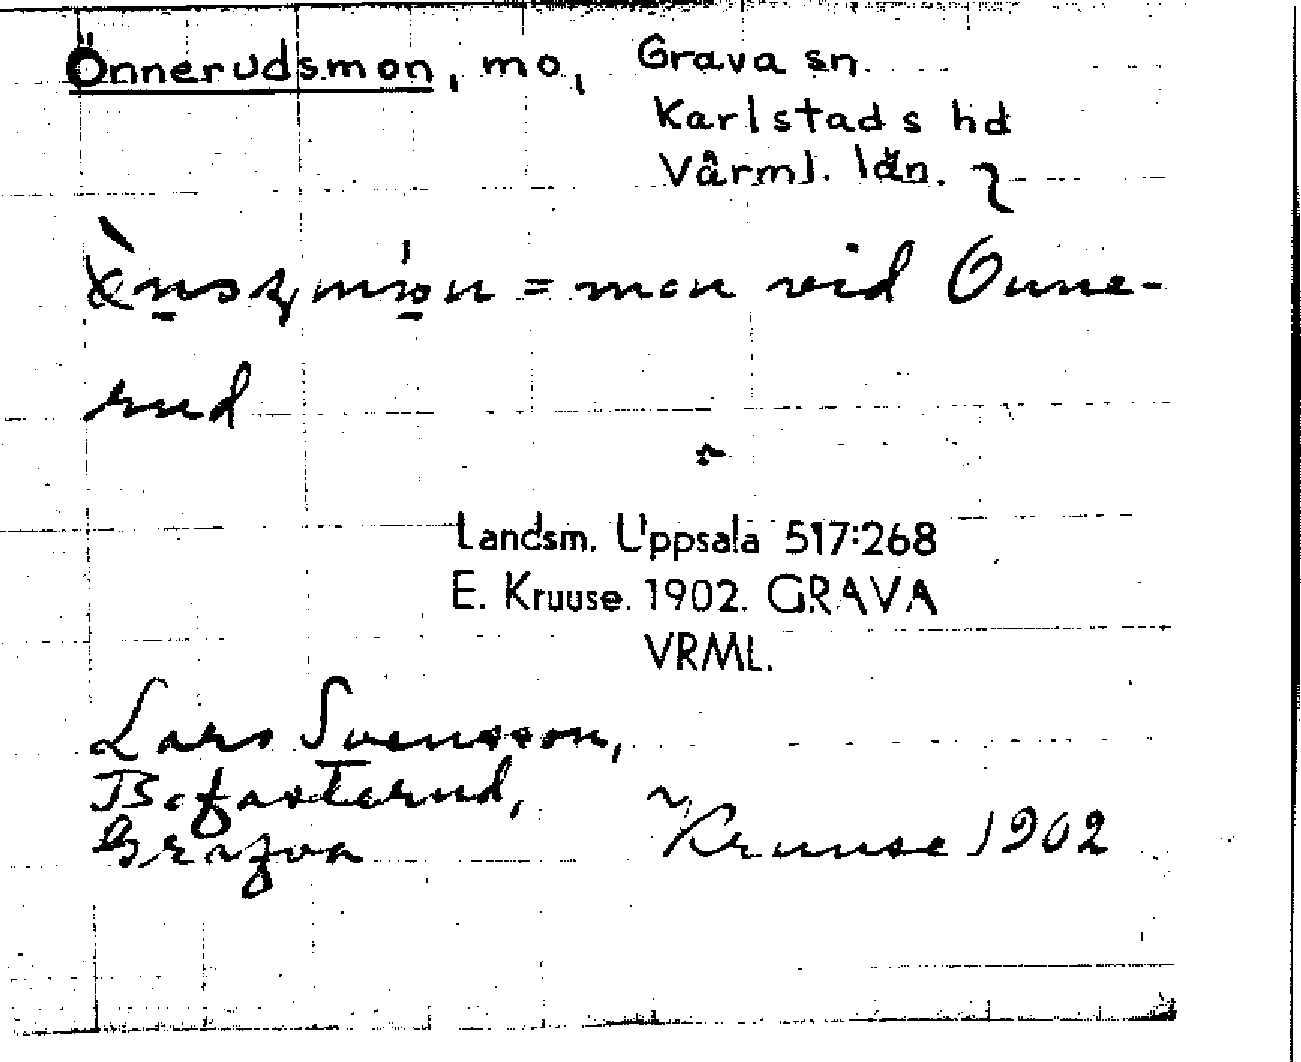 Önnerudsmon, mo, Grava sn
Karlstads hd
Värml. län.
= mon vid Önne-
rud
Landsm. Uppsala 517:268
E. Kruuse. 1902. GRAVA
VRML.
Lars Svensson,
Bofasterud,
Grafva Kruuse 1902